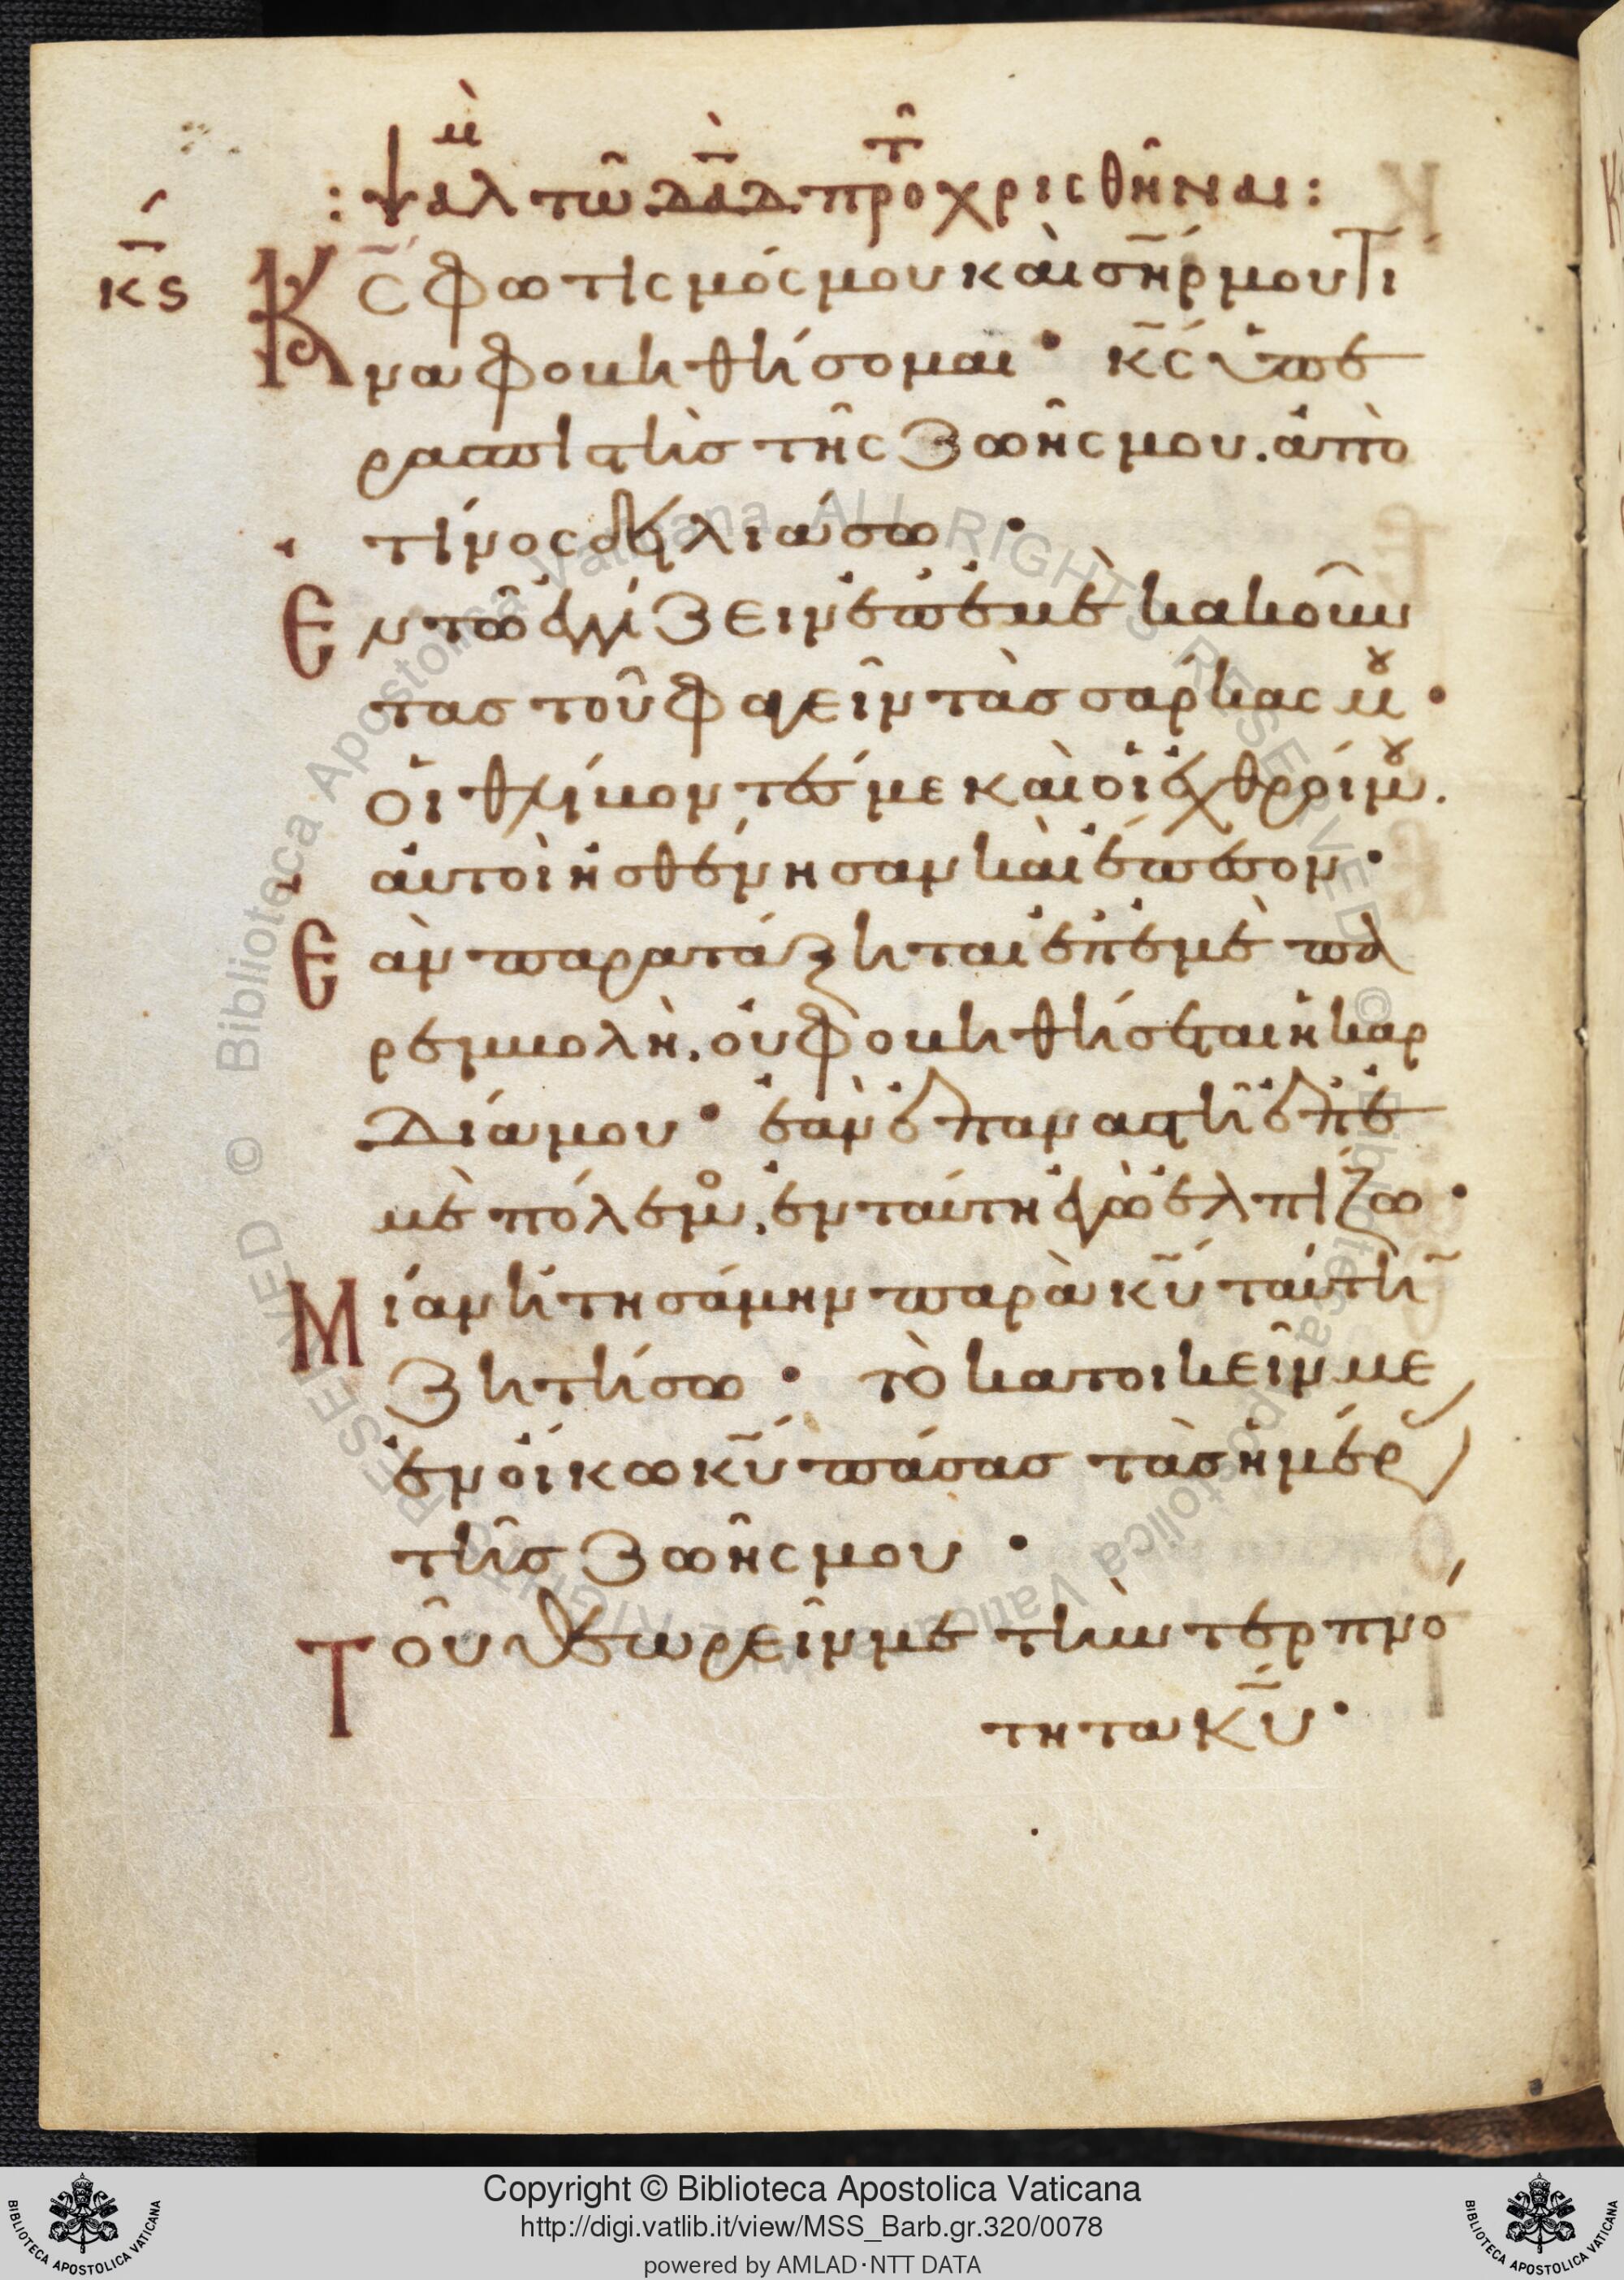 : ψαλμ̀ τῶ δᾱ̀δ πρὸ τ̑ χρισθῆναι :
κ̄ς́
Κ̄ς φωτισμός μου καὶ σ̄ήρ μου τί
να φοβηθήσομαι · κ̄ς ὑπε
ρασπιστὴσ τῆς ζωῆς μου. ἀπὸ
τίνος δειλιάσω ·
Ἐν τῶ ἐγγίζειν ἐπ' ἐμὲ κακοῦν
τασ τοῦ φαγεῖν τὰσ σάρκας μου ·
οἱ θλίβοντέσ με καὶ οἱ ἐχθροί μου.
αὐτοὶ ἠσθένησαν καὶ ἔπεσον ·
Ἐὰν παρατάξηται ἐπ' ἐμὲ πα
ρεμβολὴ. οὐ φοβηθήσεται ἡ καρ
δία μου · ἐὰν ἐπαναστῆ ἐπ' ἐ
μὲ πόλεμος. ἐν ταύτη ἐγὼ ἐλπίζω ·
Μίαν ἠτησάμην παρὰ κ̄ῡ ταύτη̄
ζητήσω · τὸ κατοικεῖν με
ἐν οἴκω κ̄ῡ πάσασ τὰσ ἡμέρ
τῆσ ζωῆς μου ·
Τοῦ θεωρεῖν με τὴν τερπνό
τητα κ̄ῡ ·
Copyright © Biblioteca Apostolica Vaticana
http://digi.vatlib.it/view/MSS_Barb.gr.320/0078
powered by AMLAD·NTT DATA
BIBLIOTECA APOSTOLICA VATICANA
BIBLIOTECA APOSTOLICA VATICANA